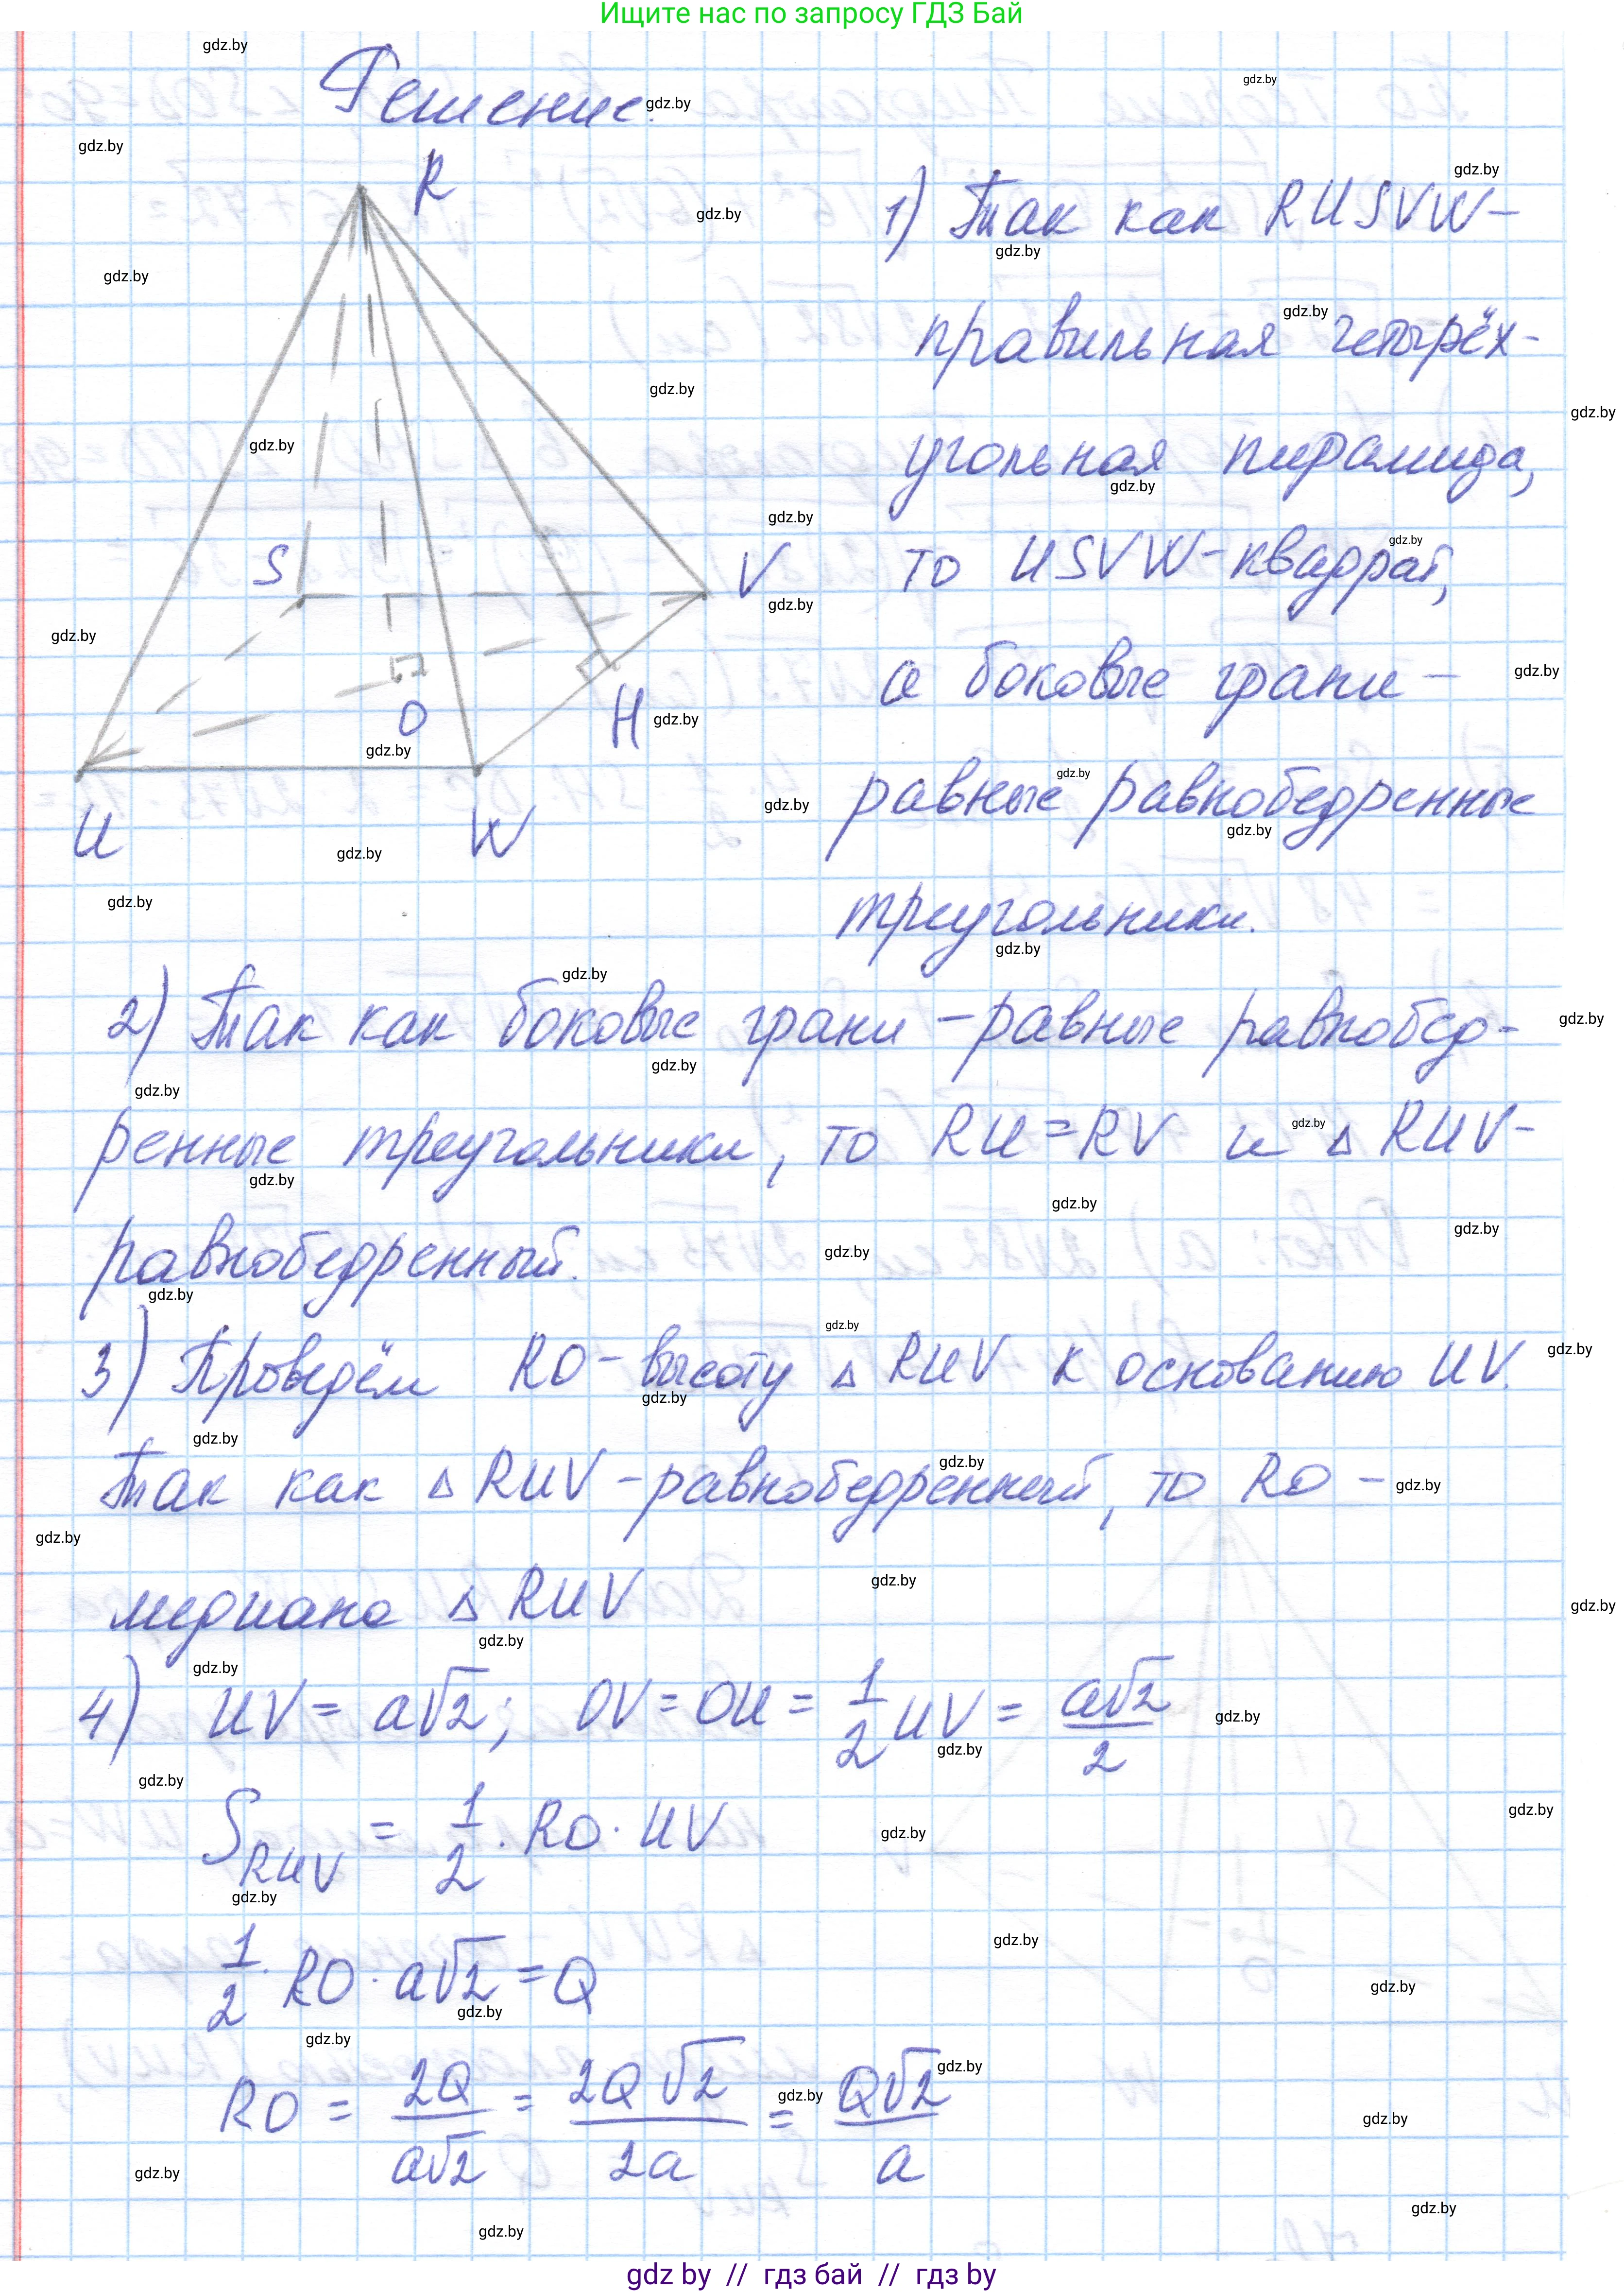 Ищите нас по запросу ГДЗ Бай
Решение.
R
S
V
O
H
U
W
1) Так как RUSVW-
правильная четырёх-
угольная пирамида,
то USVW-квадрат,
а боковые грани -
равные равнобедренные
треугольники.
2) Так как боковые грани - равные равнобед-
ренные треугольники, то RU=RV и △ RUV-
равнобедренный.
3) Проведём RO- высоту △ RUV к основанию UV.
Так как △ RUV - равнобедренный, то RO -
медиана △ RUV
4) UV = a√2; OV = OU = 1/2 UV = a√2/2
S RUV = 1/2 · RO · UV
1/2 · RO · a√2 = Q
RO = 2Q/a√2 = 2Q√2/2a = Q√2/a
gdz by // гдз бай // гдз by